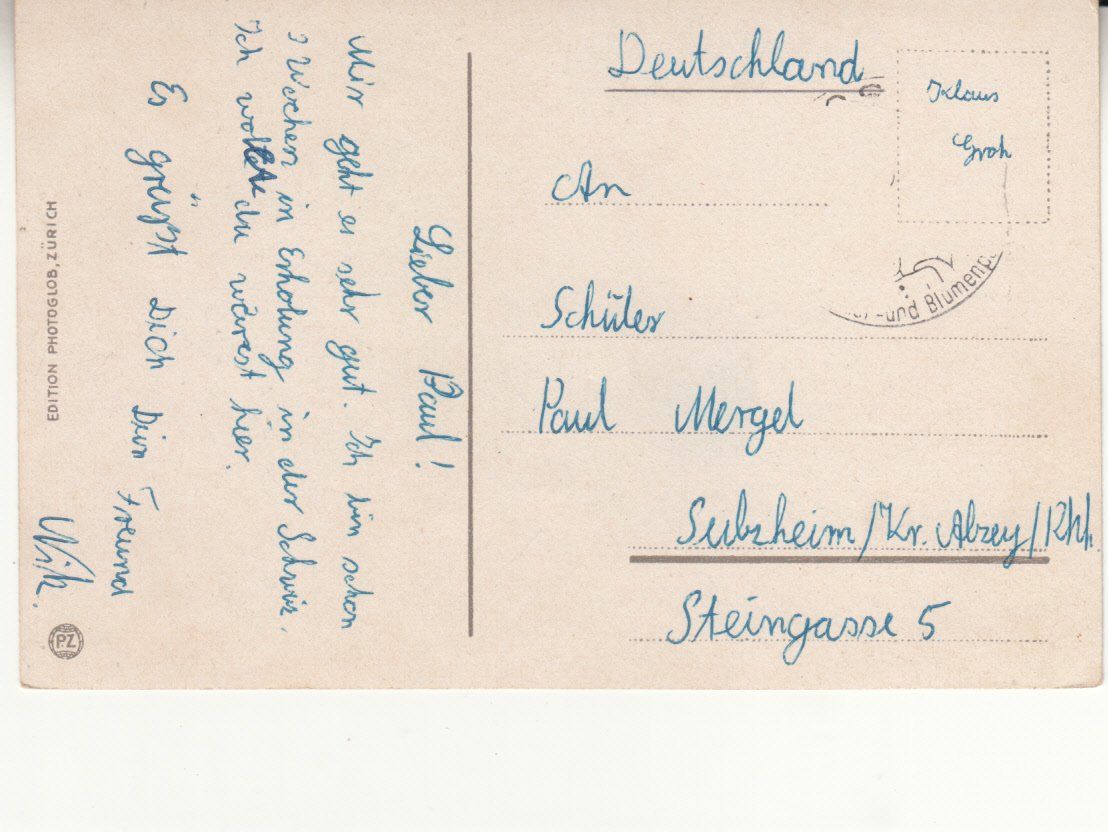 Lieber Paul!
Mir geht es sehr gut. Ich bin schon
3 Wochen in Erholung in der Schweiz.
Ich wollte du wärest hier.
Es grüßt Dich Dein Freund
Nik.
EDITION PHOTOGLOB, ZÜRICH
PZ
Deutschland
Klaus
Groh
An
Schüler
Paul Mergel
Sulzheim/Kr. Alzey/Rhh.
Steingasse 5
-und Blumenp